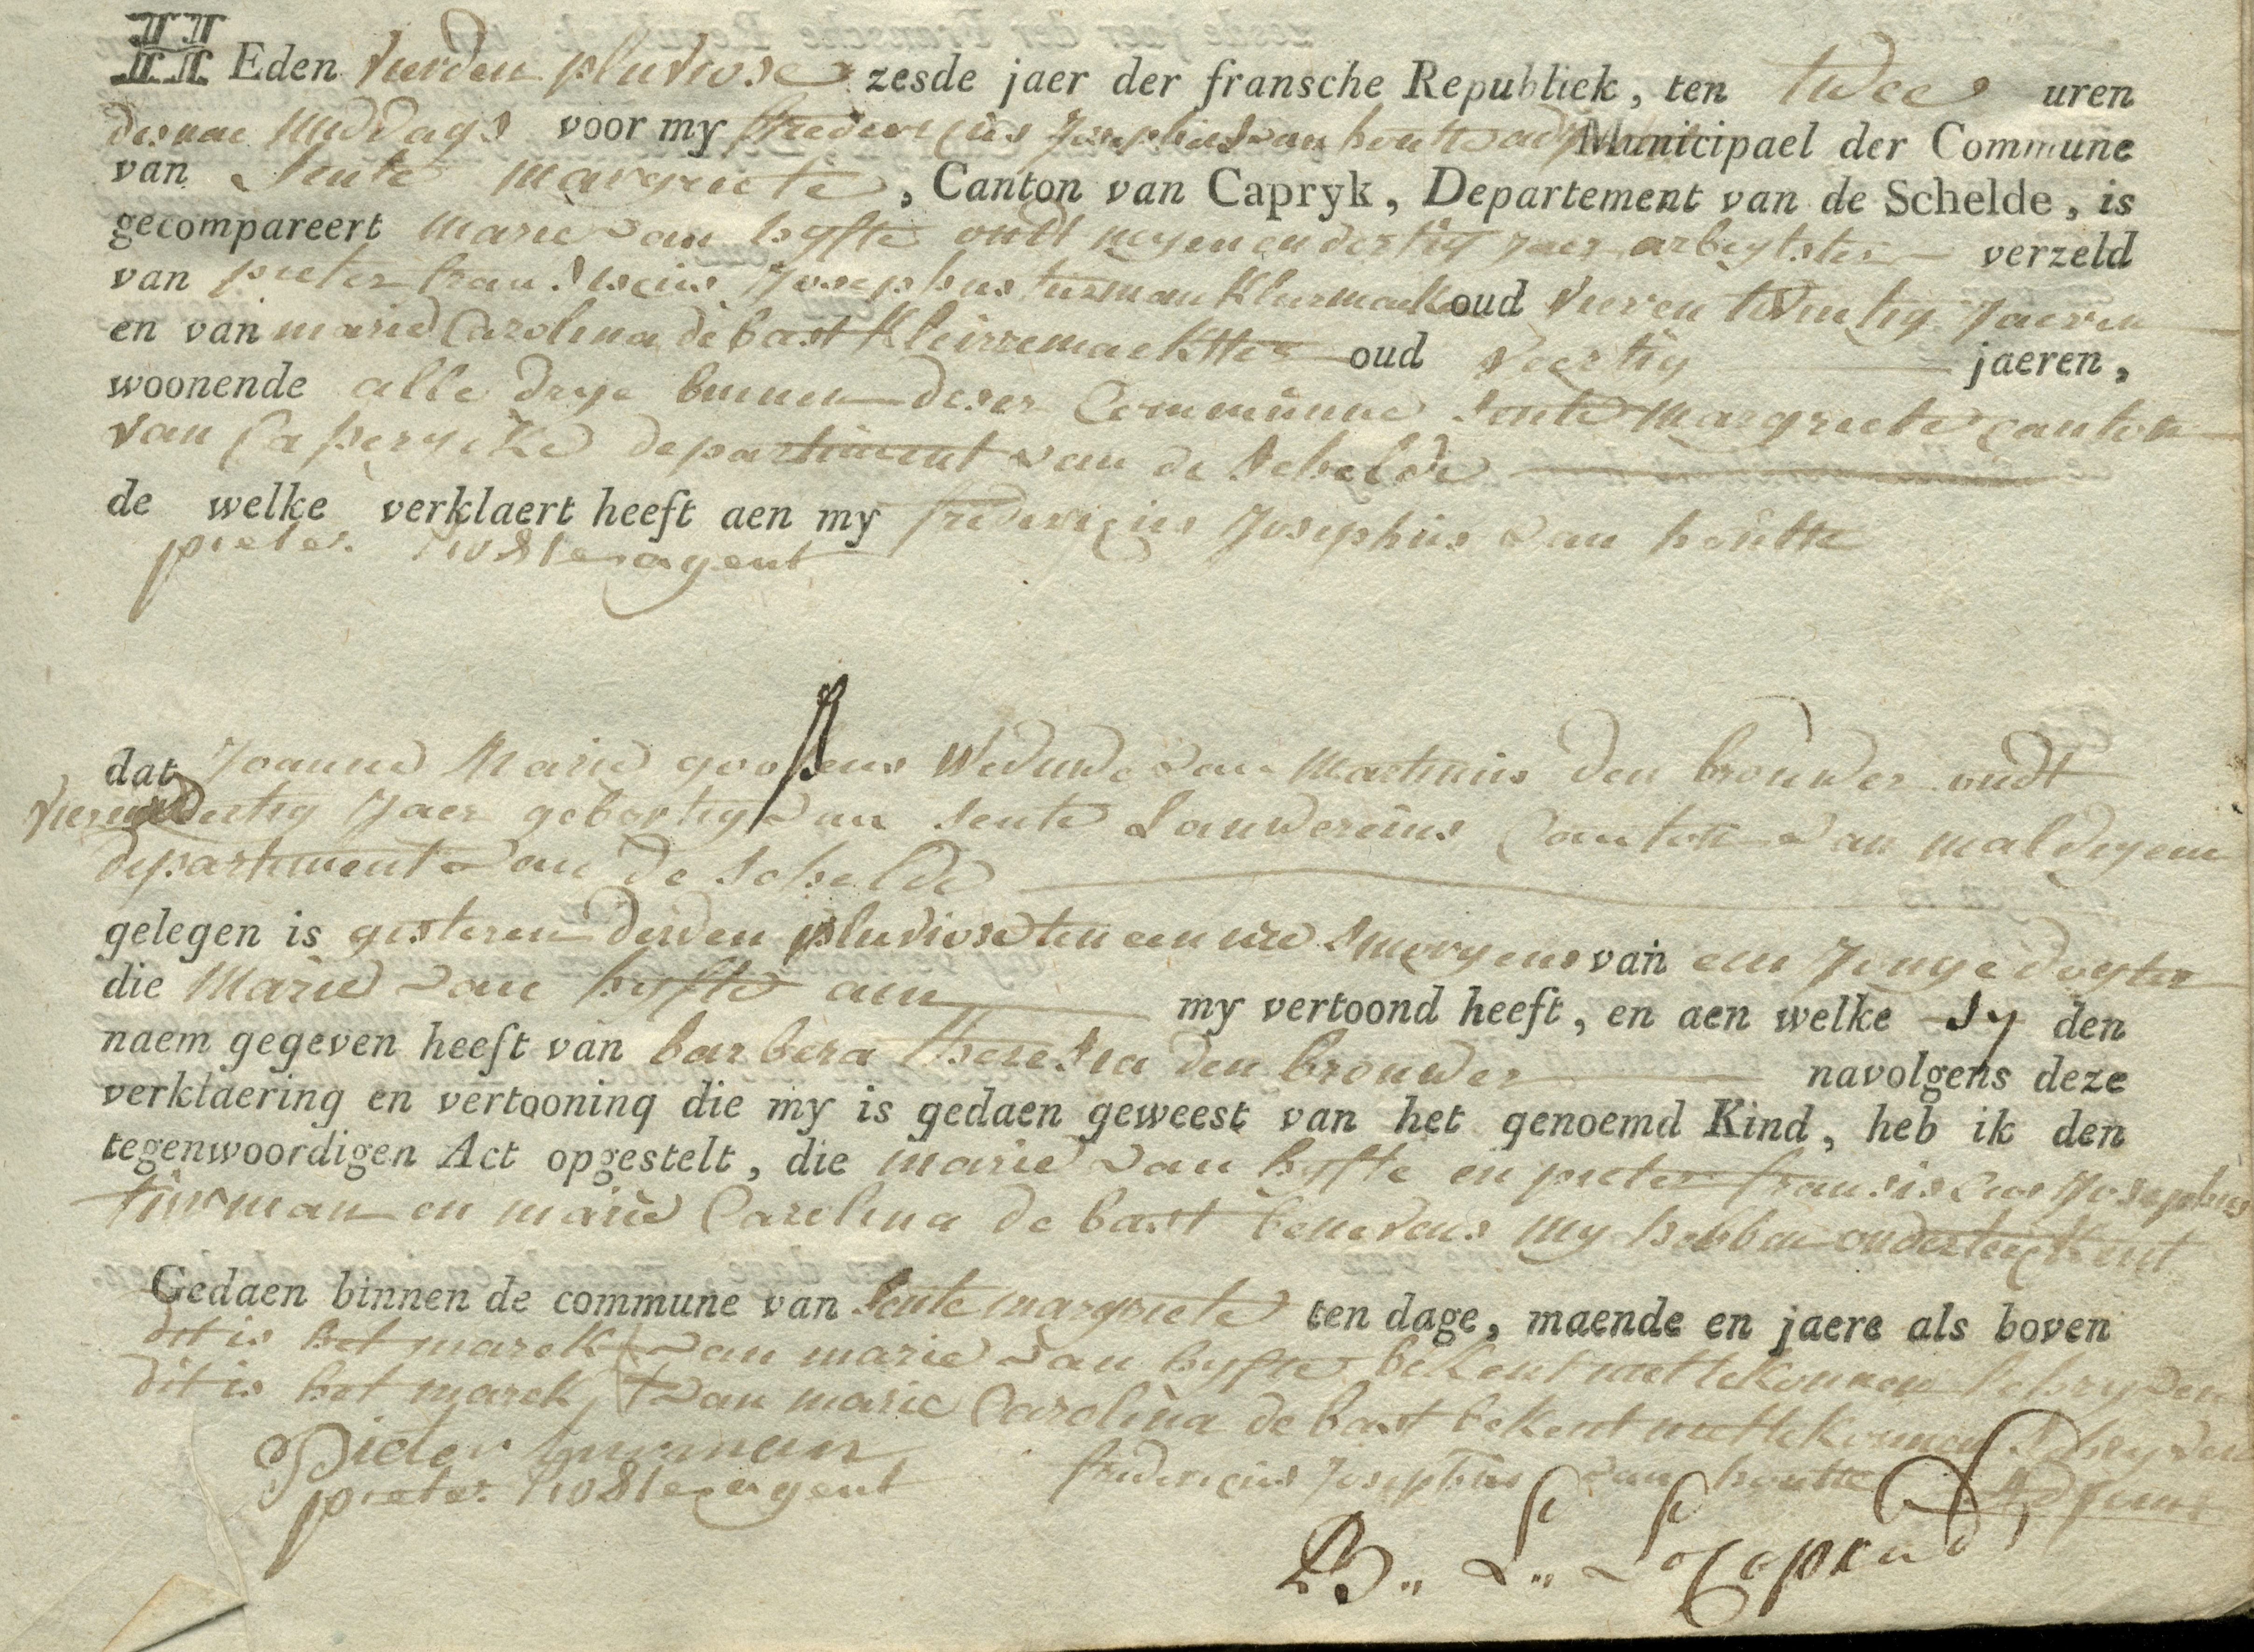 HEden vierden pluviose zesde jaer der fransche Republiek, ten twee uren
desnae middags voor my fredericus Josephus van houtte Municipael der Commune
van sente margriete, Canton van Capryk, Departement van de Schelde, is
gecompareert marie van hyfte oudt negenendertig jaer arbeytster verzeld
van pieter Josephus turman oud vierentwintig Jaeren
en van marie Carolina de bast oud veertig jaeren,
woonende alle drye binnen deser Commünne sente margriete canton
van Caperycke departiment van de schelde
de welke verklaert heeft aen my fredericus Josephus van houtte
pieter agent
dat Joanne Marie goossens Weduwe van Martinus den brouwer oudt
vierendertig Jaer gebortig van sente Lauwereins Canton van maldegem
departiment van de schelde
gelegen is gisteren derden pluviose ten een ure smorgens van een Jonge dogter
die Marie van hyfte aen my vertoond heeft, en aen welke sy den
naem gegeven heeft van barbera theresia den brouwer navolgens deze
verklaering en vertooning die my is gedaen geweest van het genoemd Kind, heb ik den
tegenwoordigen Act opgestelt, die marie van hyfte en pieter fransiscus Josephus
turman en marie Carolina de bast benevens my hebben onderteeckent
Gedaen binnen de commune van sente margriete ten dage, maende en jaere als boven
dit is het marck van marie van hyfte bekent niet te konnen schryven
dit is het marck van marie Carolina de bast bekent niet te konnen schryven
Pieter turman
fredericus Josephus van houtte
pieter agent